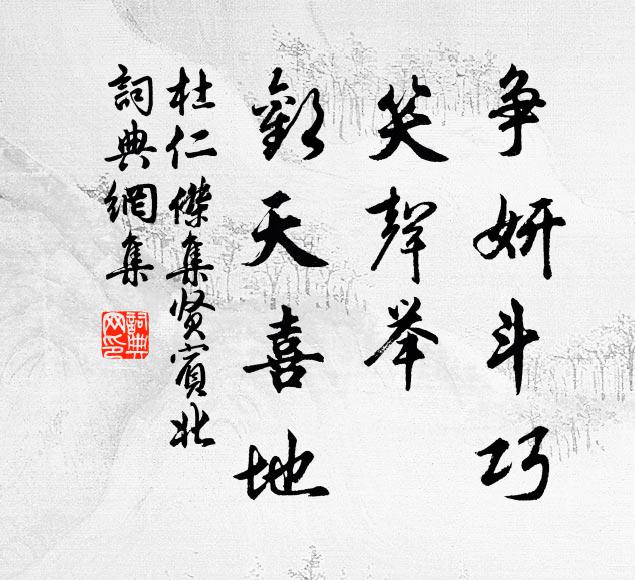 争妍斗巧
笑聲举
歡天喜地
杜仁傑集贤賓北
詞典網集
詞典
网印